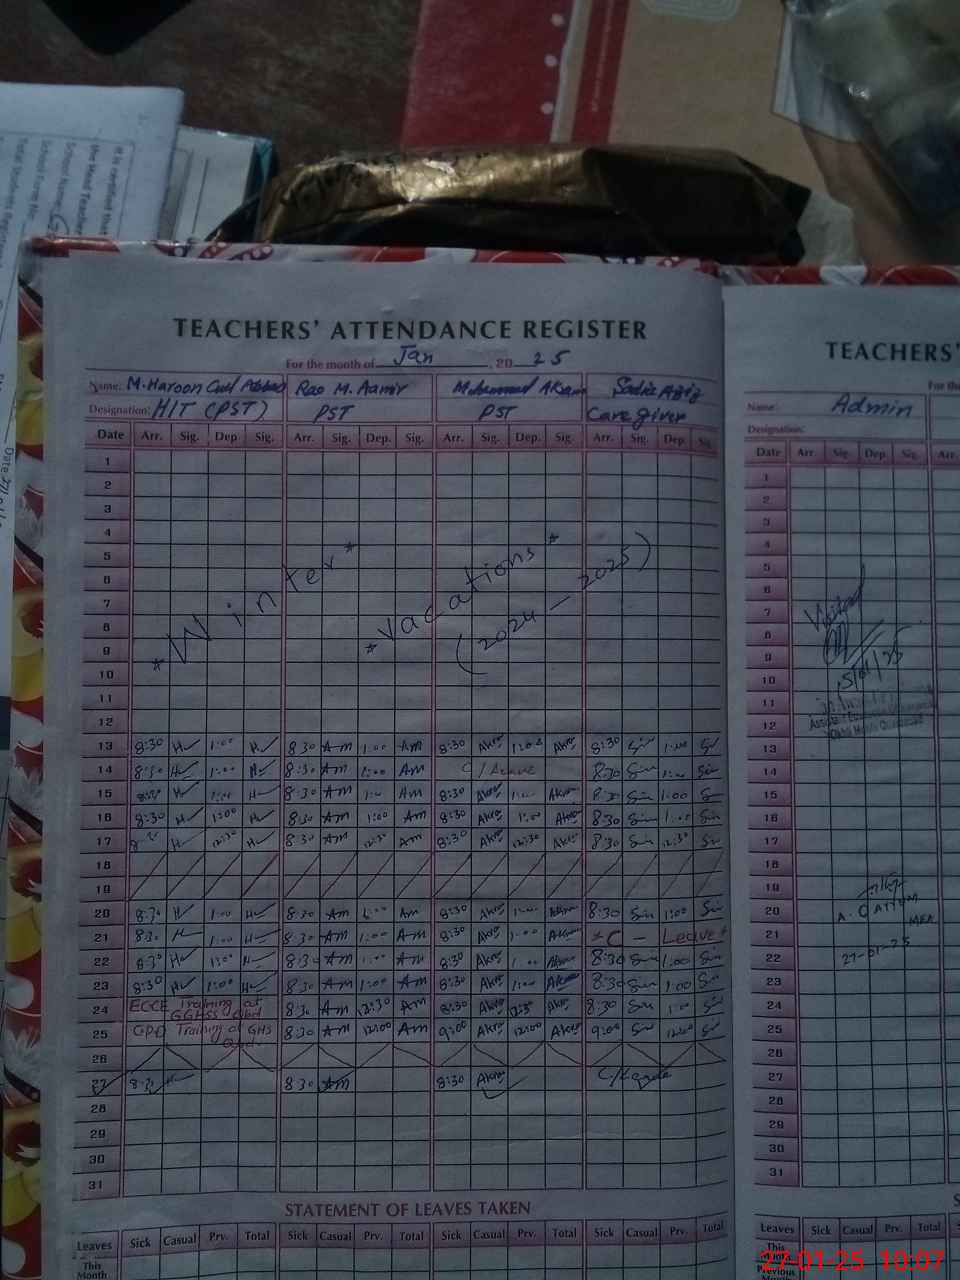 It is certified that
the Head Teacher
School Name:
School Emis No.
Total Students Registered
Date:
TEACHERS' ATTENDANCE REGISTER
For the month of Jan , 20 25
Name: M. Haroon Rao M. Aamir Muhammad Akram Sadia Aziz
Designation: HIT (PST) PST PST Care giver
Date Arr. Sig. Dep. Sig. Arr. Sig. Dep. Sig. Arr. Sig. Dep. Sig. Arr. Sig. Dep. Sig.
1
2
3
4
5
6
7
8
9
10
11
12
* Winter *
* Vacations *
(2024 - 2025)
13 8:30 1:00 8:30 Am 1:00 Am 8:30 Akram 1:00 Akram 8:30 1:00
14 8:30 1:00 8:30 Am 1:00 Am C/Leave 8:30 1:00
15 8:30 1:00 8:30 Am 1:00 Am 8:30 Akram 1:00 Akram 8:30 1:00
16 8:30 1:00 8:30 Am 1:00 Am 8:30 Akram 1:00 Akram 8:30 1:00
17 12:30 8:30 Am 12:30 Am 8:30 Akram 12:30 Akram 8:30 12:30
18
19
20 8:30 1:00 8:30 Am 1:00 Am 8:30 Akram 1:00 Akram 8:30 1:00
21 8:30 1:00 8:30 Am 1:00 Am 8:30 Akram 1:00 Akram * C - Leave *
22 8:30 1:00 8:30 Am 1:00 Am 8:30 Akram 1:00 Akram 8:30 1:00
23 8:30 1:00 8:30 Am 1:00 Am 8:30 Akram 1:00 Akram 8:30 1:00
24 ECCE Training at GGHSS Qbd 8:30 Am 12:30 Am 8:30 Akram 12:30 Akram 8:30 1:00
25 CPD Training at GHS Qbd. 8:30 Am 12:00 Am 9:00 Akram 12:00 Akram 9:00 12:00
26
27 8:30 8:30 Am 8:30 Akram C/Leave
28
29
30
31
STATEMENT OF LEAVES TAKEN
Leaves Sick Casual Prv. Total Sick Casual Prv. Total Sick Casual Prv. Total Sick Casual Prv. Total
This
Month
TEACHERS'
For the
Name: Admin
Designation:
Date Arr. Sig. Dep Sig. Arr.
1
2
3
4
5
6
7
8
9
10
11
12
13
14
15
16
17
18
19
20
21
22
23
24
25
26
27
28
29
30
31
Visited
15/01/25
A.QAYYUM
MEA
27-01-25
Leaves Sick Casual Prv. Total Sick
This
Month
Previous
27-01-25 10:07